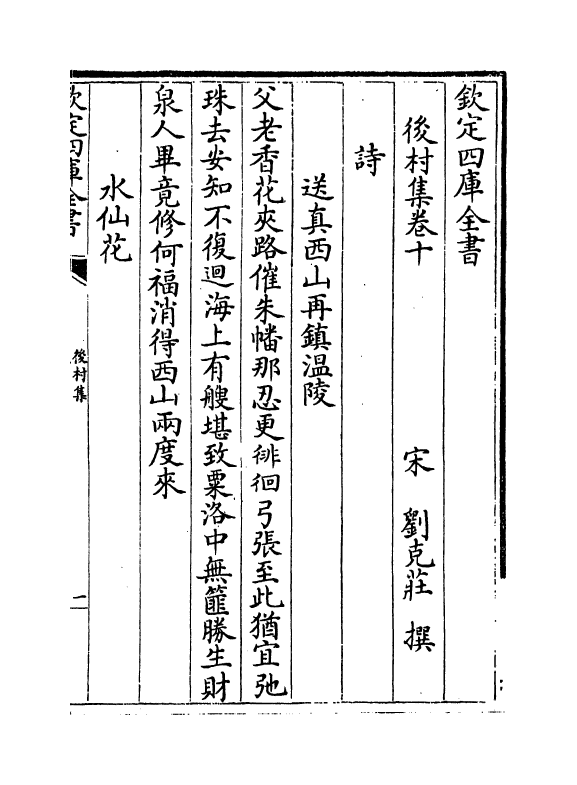 欽定四庫全書
後村集卷十　宋　劉克莊　撰
詩
送真西山再鎮温陵
父老香花夾路催朱幡那忍更徘徊弓張至此猶宜弛
珠去安知不復迴海上有艘堪致粟洛中無篚勝生財
泉人畢竟修何福消得西山兩度來
水仙花
欽定四庫全書
後村集